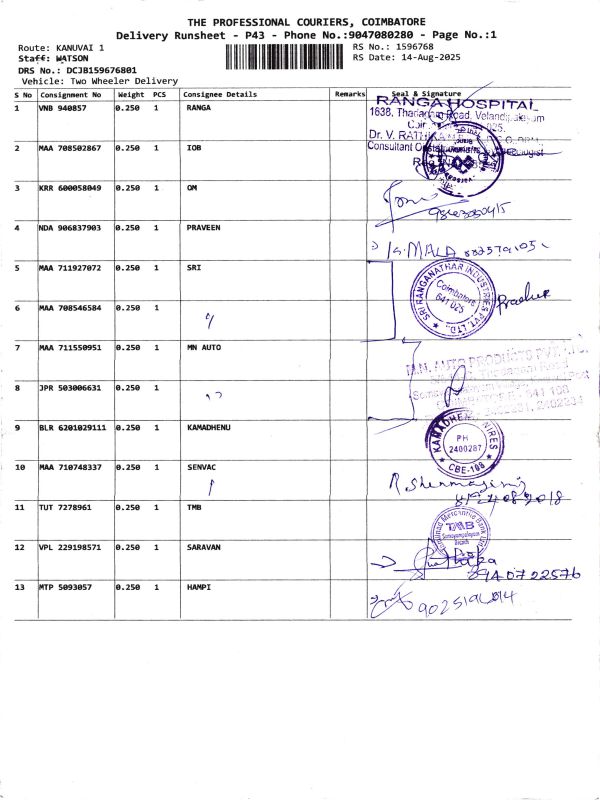 THE PROFESSIONAL COURIERS, COIMBATORE
Delivery Runsheet - P43 - Phone No.:9047080280 - Page No.:1
Route: KANUVAI 1
RS No.: 1596768
Staff: WATSON
RS Date: 14-Aug-2025
DRS No.: DCJB159676801
Vehicle: Two Wheeler Delivery
S No Consignment No Weight PCS Consignee Details Remarks Seal & Signature
1 VNB 940857 0.250 1 RANGA
RANGA HOSPITAL
2 MAA 708502867 0.250 1 IOB
3 KRR 600058049 0.250 1 OM
4 NDA 906837903 0.250 1 PRAVEEN
5 MAA 711927072 0.250 1 SRI
SRI RANGANATHAR INDUSTRIES PVT. LTD.
Coimbatore
641 025
6 MAA 708546584 0.250 1
7 MAA 711550951 0.250 1 MN AUTO
M.N. AUTO PRODUCTS PVT. LTD.
8 JPR 503006631 0.250 1
9 BLR 6201029111 0.250 1 KAMADHENU
KAMADHENU WIRES
PH
2400287
CBE-108
10 MAA 710748337 0.250 1 SENVAC
11 TUT 7278961 0.250 1 TMB
TMB
Branch
12 VPL 229198571 0.250 1 SARAVAN
8940722576
13 MTP 5093057 0.250 1 HAMPI